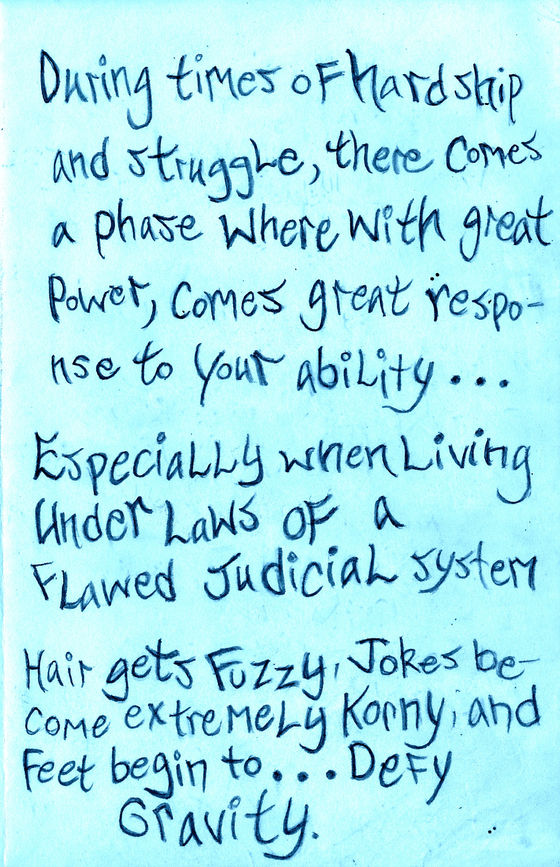 During times of hardship
and struggle, there comes
a phase where with great
power, comes great respo-
nse to your ability...
Especially when living
under laws of a
flawed judicial system
Hair gets fuzzy, jokes be-
come extremely korny, and
feet begin to... Defy
Gravity.